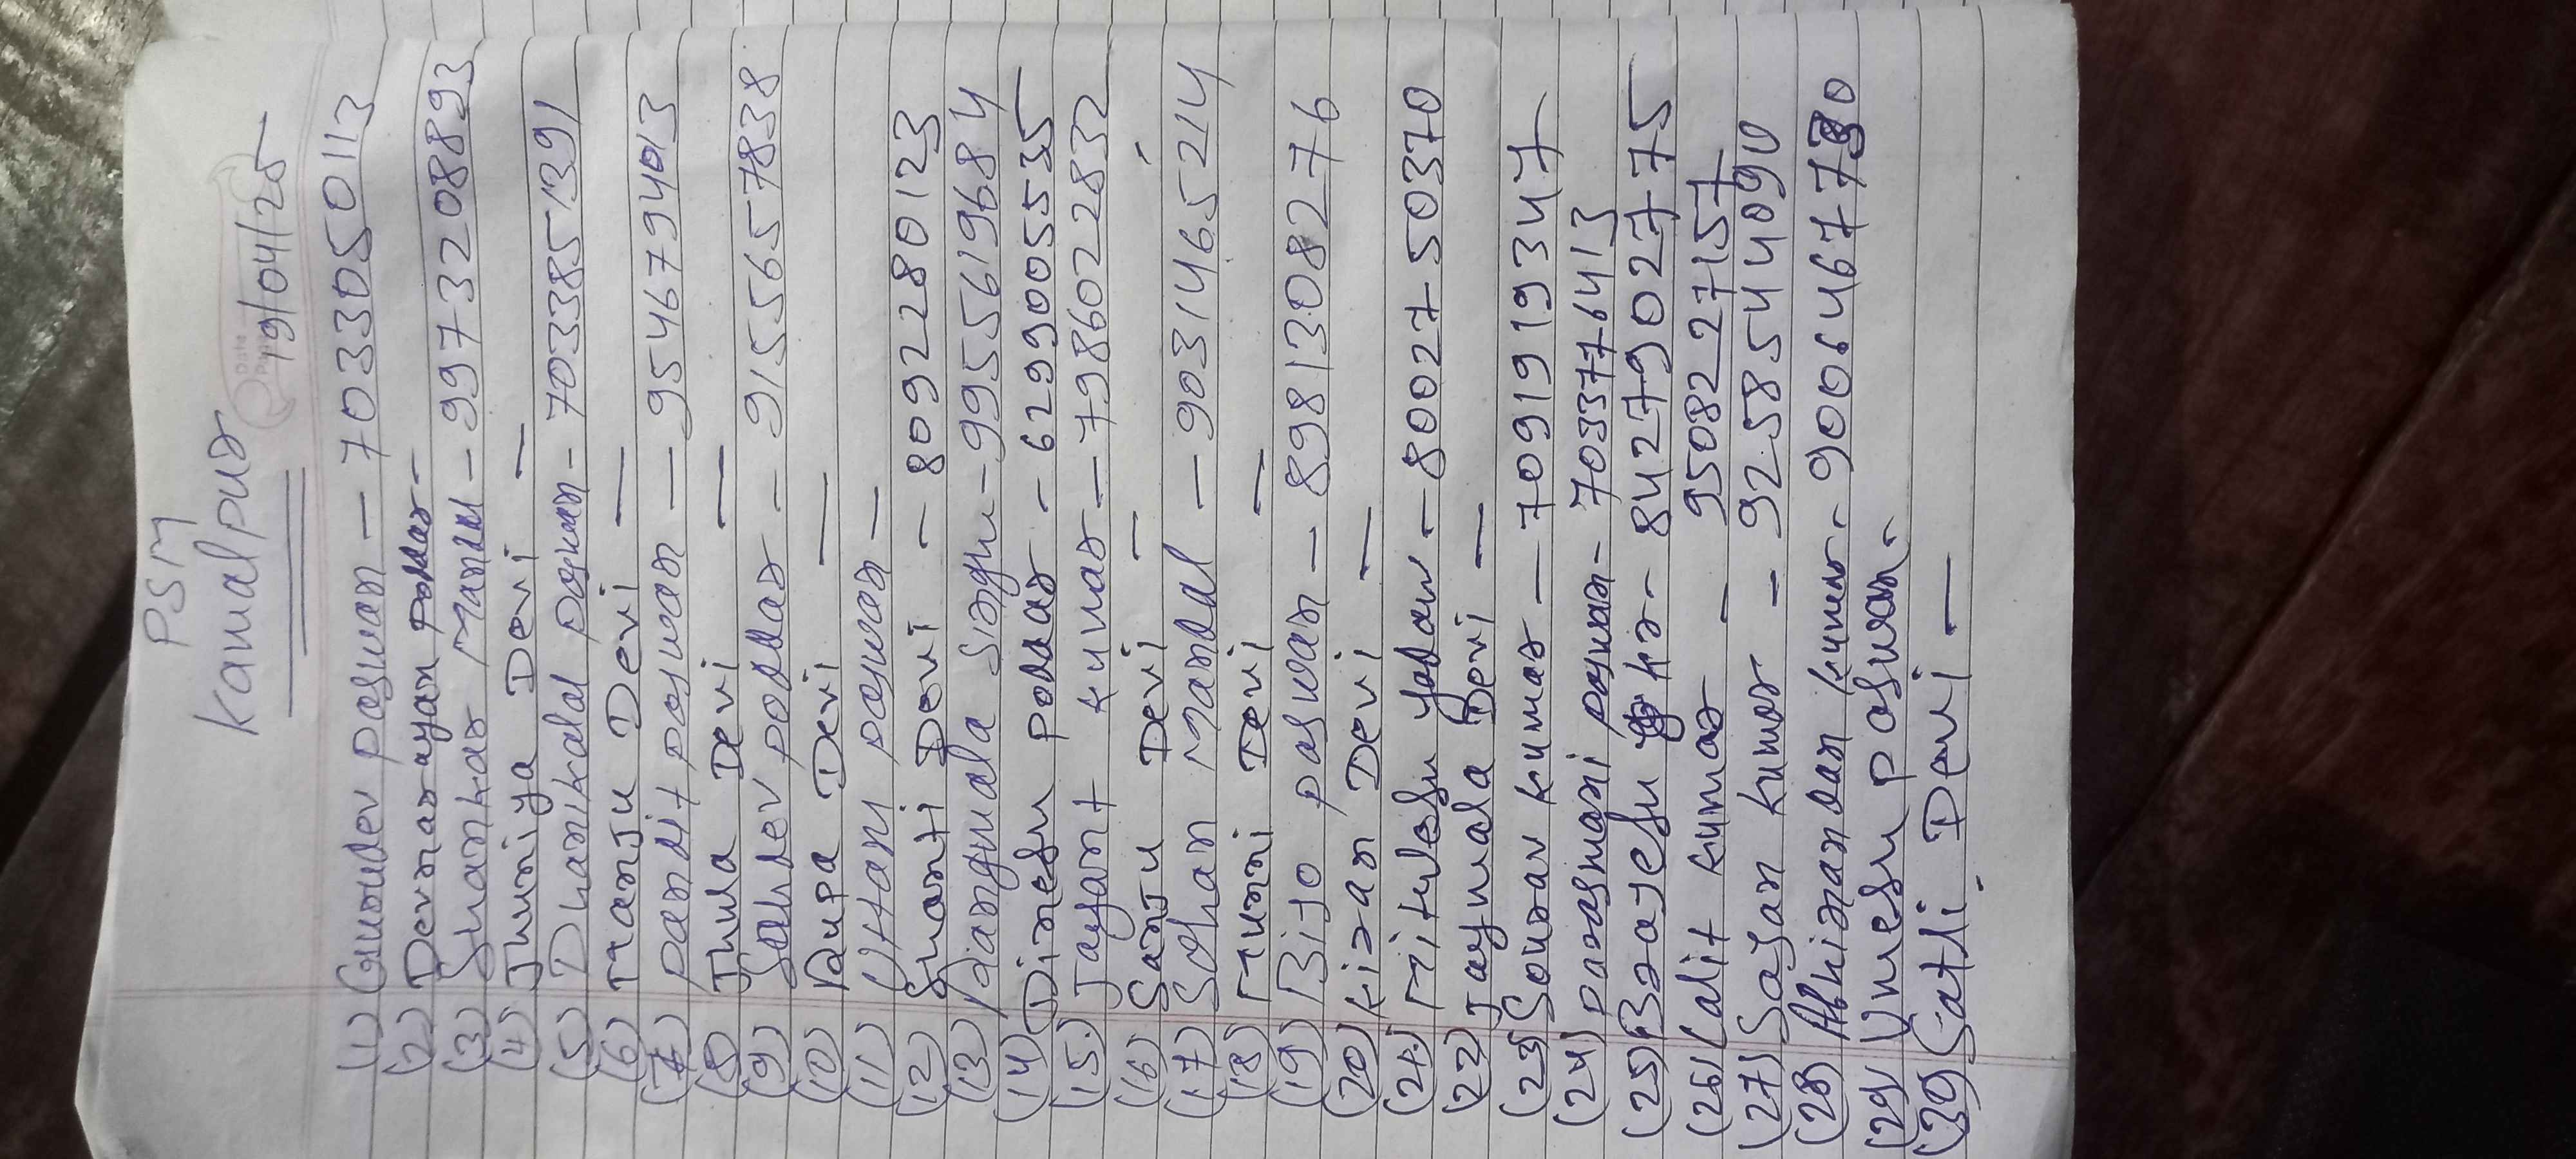 PSM
Kamalpur
Date
19/04/25
(1) Gunudev paswan — 7033050113
(2) Devnarayan poddar -
(3) Shankar Mandal - 9973208893
(4) Jhuniya Devi —
(5) Dhanikalal paswan - 7033851391
(6) Manju Devi —
(7) pandit paswan — 9546794013
(8) Jhula Devi —
(9) Sahdev poddar - 9155657838
(10) Rupa Devi —
(11) Uttam paswan —
(12) Shanti Devi - 8092280123
(13) Rangmala singh - 9955619684
(14) Dinesh poddar - 6299005535
(15) Jayant kumar - 7986022832
(16) Sanju Devi —
(17) Sohan Mandal - 9031465214
(18) Munni Devi —
(19) Bijo paswan - 8981308276
(20) kiran Devi —
(21) Mithlesh yadav - 8002750370
(22) Jaymala Devi —
(23) Sourav kumar - 7091919347
(24) parasmani paswan - 7033776413
(25) Brajesh kr - 8427902775
(26) Lalit kumar - 9508227157
(27) Sajan kumar - 9258544090
(28) Abhinandan kumar - 90064677
(29) Umesh paswan -
(30) Sati Devi —